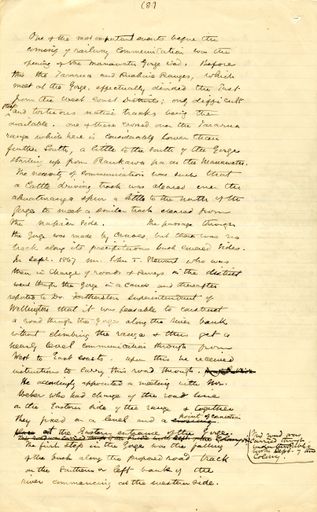 (8)
One of the most important events before the
coming of railway communication was the
opening of the Manawatu Gorge Road. Before
this the Tararua and Ruahine Ranges, which
meet at the Gorge, effectually divided the East
from the West Coast Districts; only difficult
and tortuous native tracks being then
available. One of these crossed over the Tararua
range which here is considerably lower than
further South, a little to the south of the Gorge
The necessity of communication was such that
a Cattle driving track was cleared over the
spur a little to the north of the
Gorge to meet a similar track cleared from
the Napier Side. The passage through
the Gorge was made by canoes, but there was no
track along its precipitous bush covered sides.
In Sept. 1867 Mr. John T. Stewart who was
then in charge of roads & surveys in the district
went through the Gorge in a canoe and thereafter
reported to Dr. Featherston Superintendent of
Wellington that it was feasible to construct
a road through the Gorge along the river bank
without climbing the range & then get a
nearly level communication through from
West to East coasts. Upon this he received
instructions to carry this road through.
He accordingly appointed a meeting with Mr.
Weber who had charge of the road line
on the Eastern side of the range & together
they fixed on a level and a point of junction
at the Eastern entrance of the Gorge.
This road was
carried through
under the Public
Works Dept. of the
Colony.
The first step in the Gorge was the falling
of the bush along the proposed road track
on the Southern or left bank of the
river commencing at the western side.